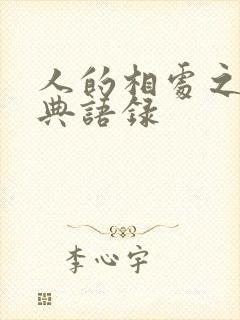 人的相處之
典語錄
李心宇